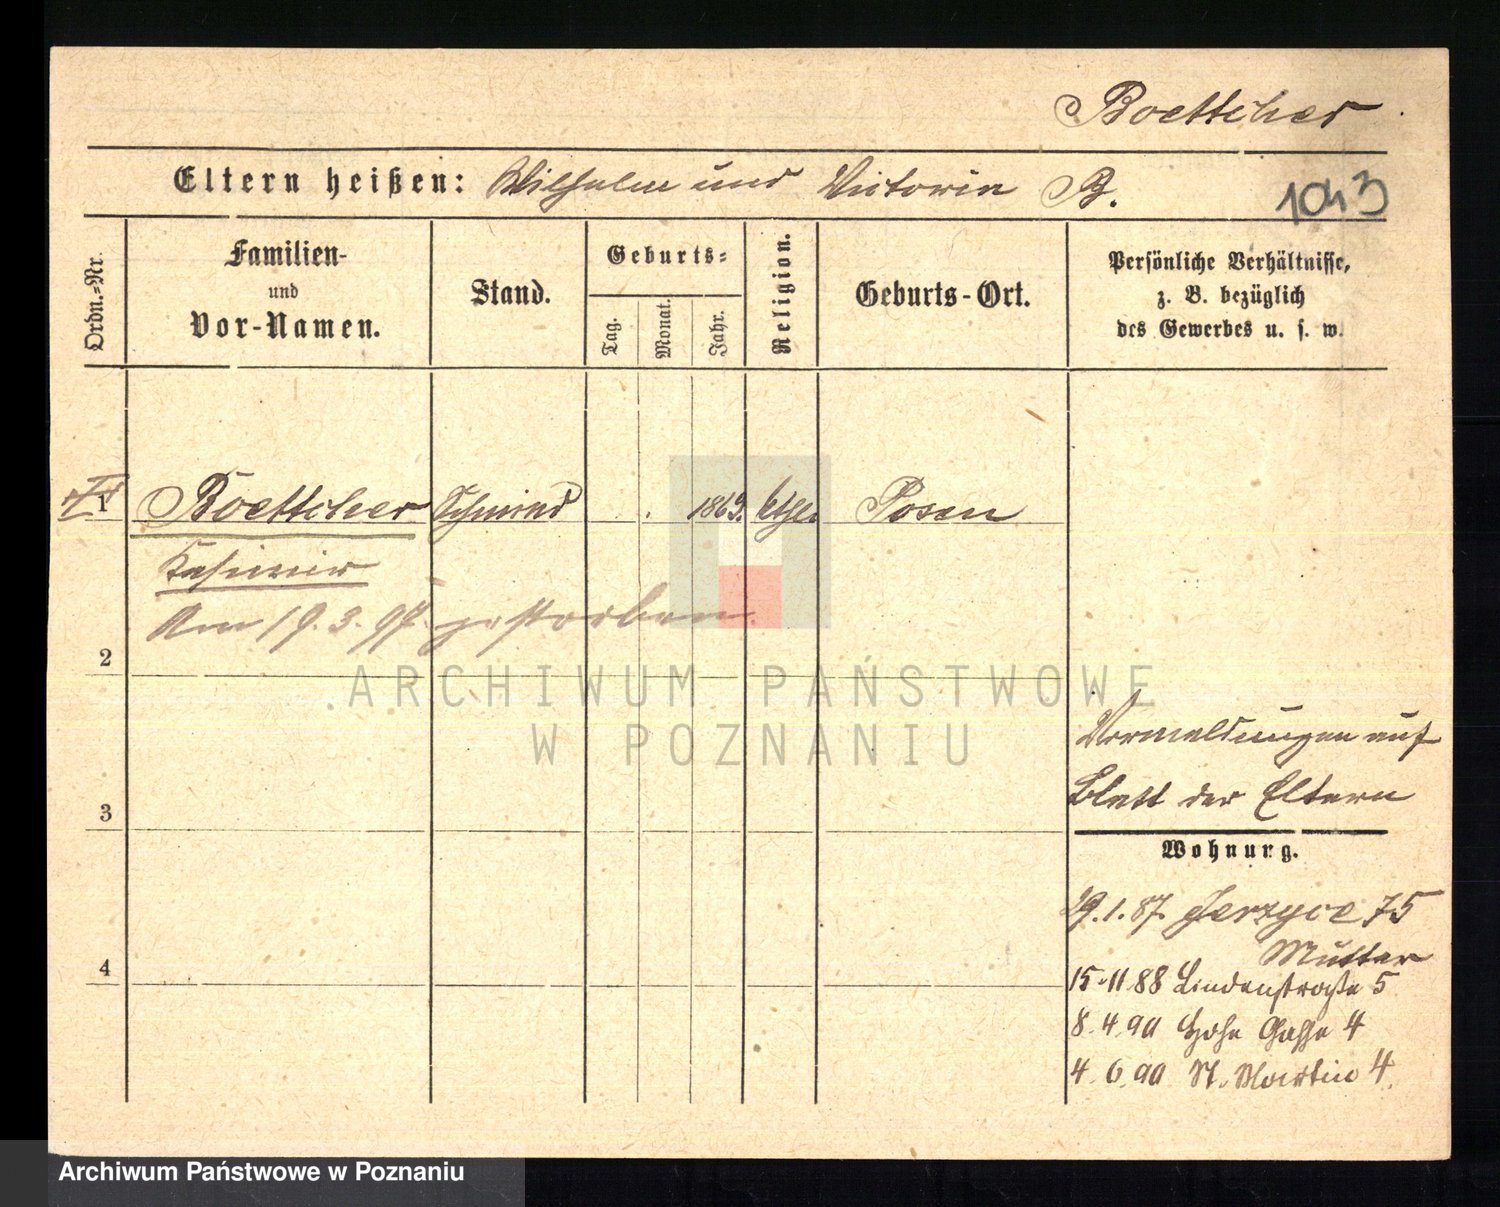 Boettcher
Eltern heißen: Wilhelm und Victoria B.
1043
Ordn.-Nr.
Familien-
und
Vor-Namen.
Stand.
Geburts-
Tag.
Monat.
Jahr.
Religion.
Geburts-Ort.
Persönliche Verhältnisse,
z. B. bezüglich
des Gewerbes u. s. w.
1 Boettcher Schmied 1869. kthl. Posen
Kasimir
Am 19.3.97. gestorben.
2
3
4
Vormeldungen auf
Blatt der Eltern
Wohnung.
29.1.87. Jerzyce 75
Mutter
15.11.88 Lindenstraße 5
8.4.90 Hohe Gasse 4
4.6.90 St. Martin 4.
ARCHIWUM PAŃSTWOWE
W POZNANIU
Archiwum Państwowe w Poznaniu